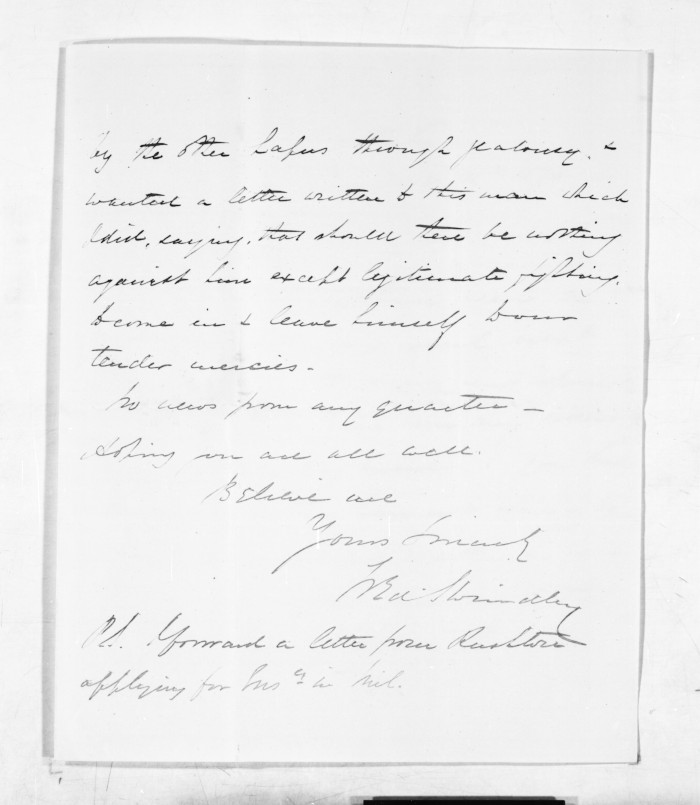 by the other hapus through jealousy. &
wanted a letter written to this man which
I did, saying, that should there be nothing
against him except legitimate fighting,
to come in & leave himself to our
tender mercies -
No news from any quarter -
Hoping you are all well.
Believe me
Yours sincerely
P.S. I forward a letter from Rushton
applying for in Mil.